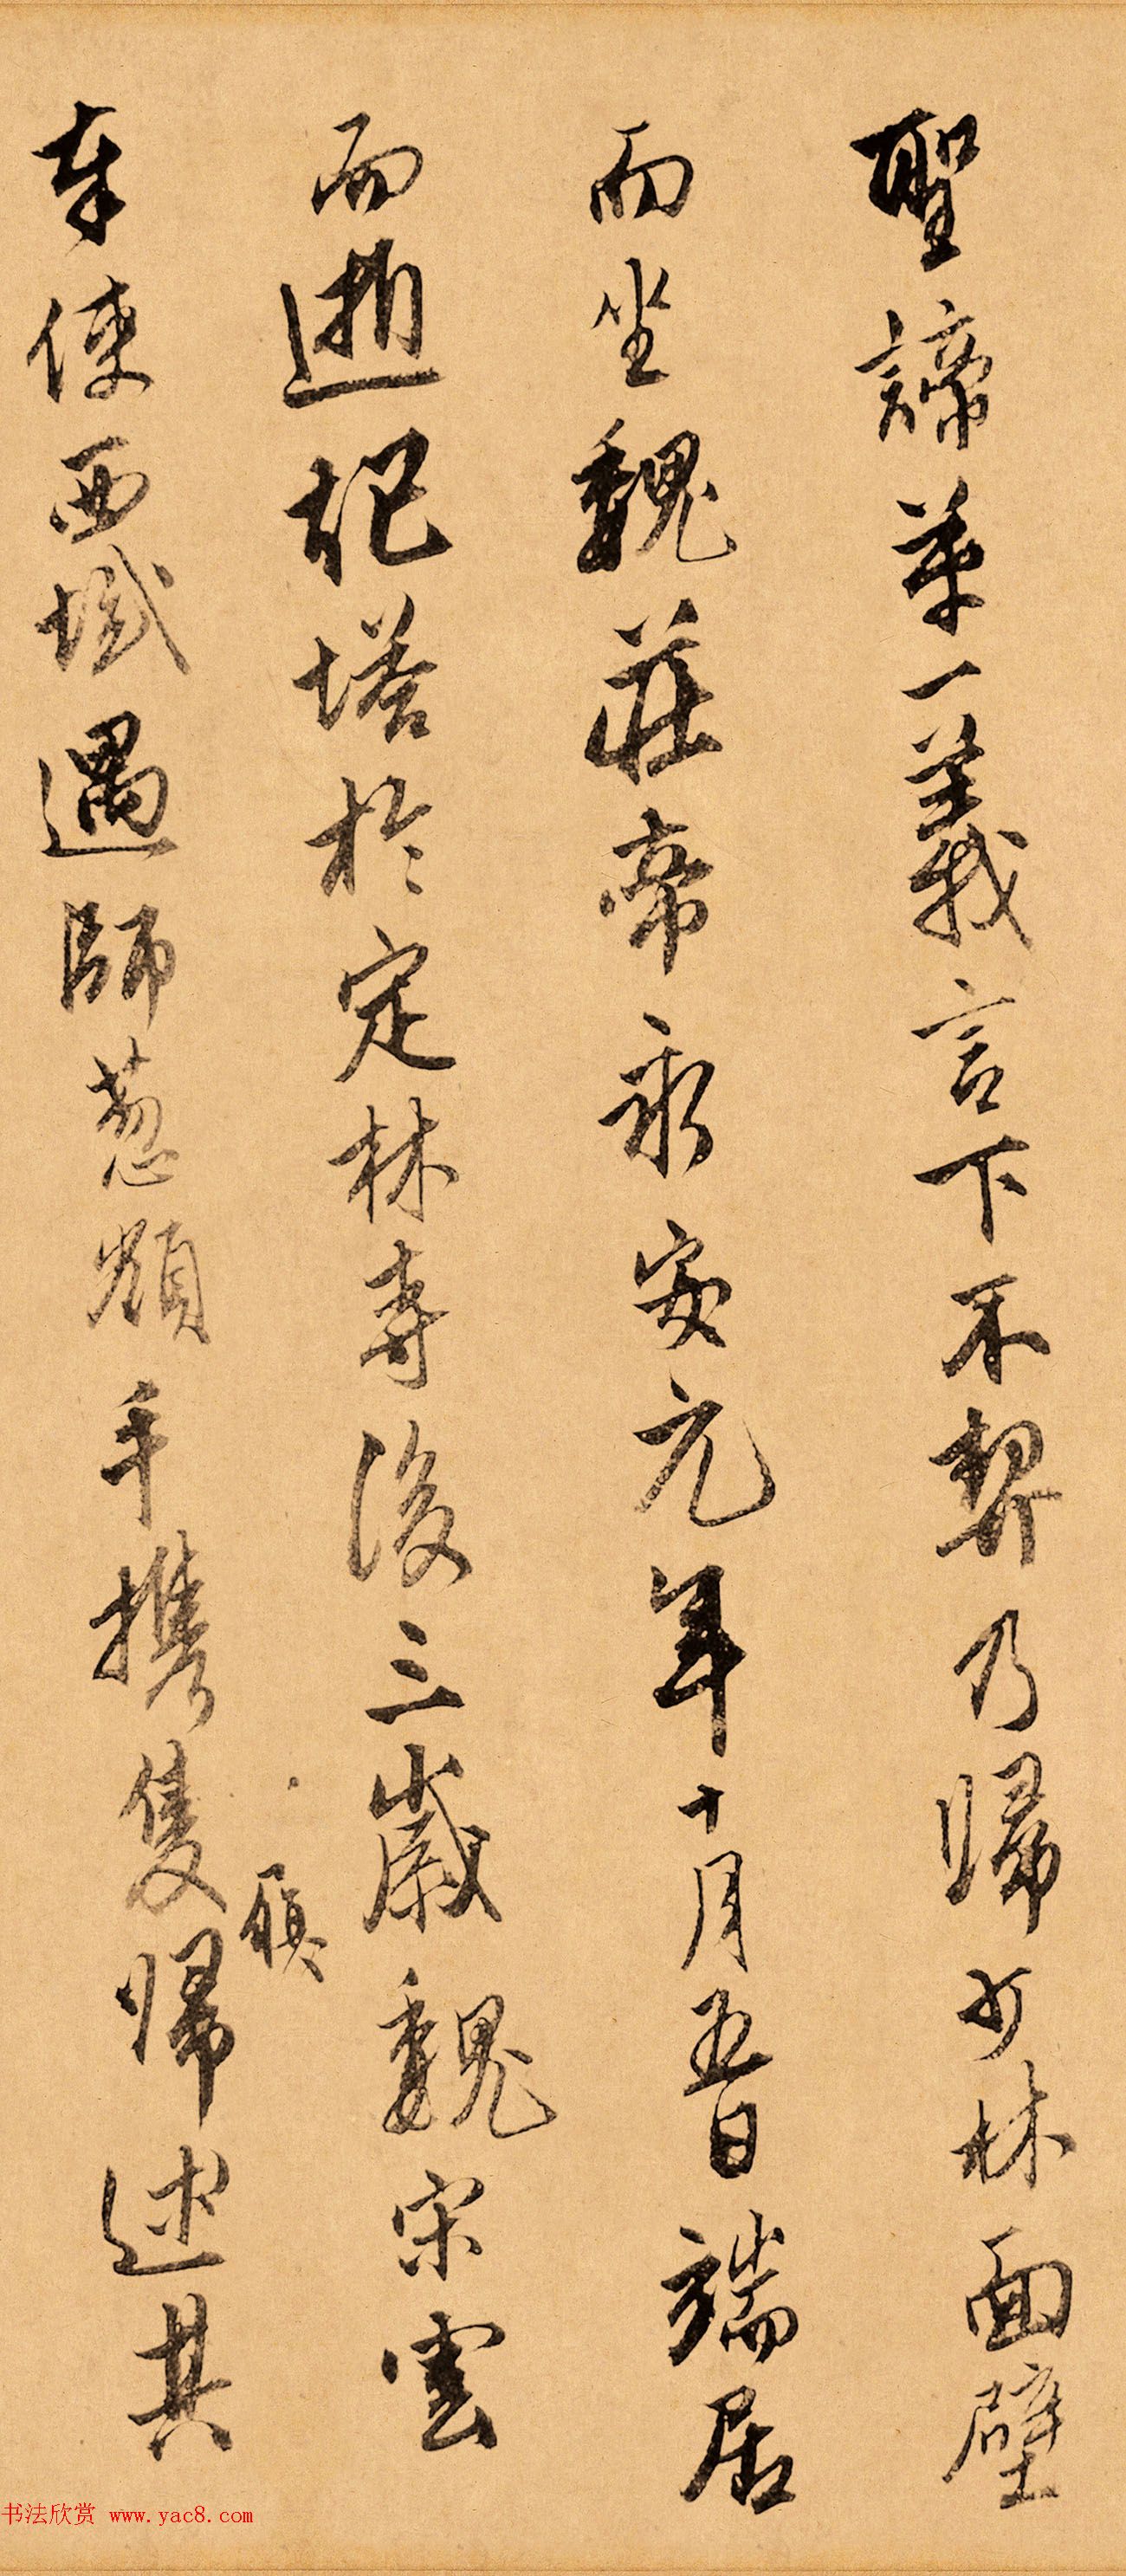 聖諦第一義言下不契乃歸少林面壁
而坐魏莊帝永安元年十月五日端居
而逝起塔於定林寺後三歲魏宋雲
奉使西域遇師葱嶺手携隻歸述其
履
书法欣赏 www.yac8.com